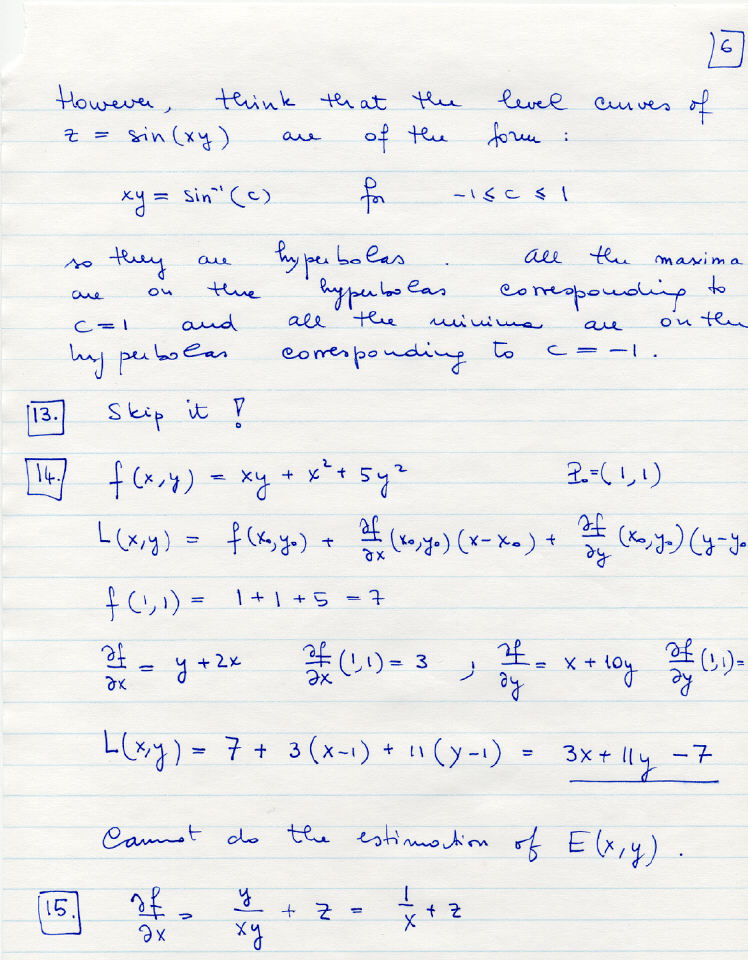 6
However, think that the level curves of
z = sin(xy) are of the form :
xy = sin⁻¹(c) for -1 ≤ c ≤ 1
so they are hyperbolas . All the maxima
are on the hyperbolas corresponding to
c=1 and all the minima are on the
hyperbolas corresponding to c = -1 .
13. Skip it !
14. f(x,y) = xy + x² + 5y² P₀=(1,1)
L(x,y) = f(x₀,y₀) + ∂f/∂x (x₀,y₀)(x-x₀) + ∂f/∂y (x₀,y₀)(y-y₀
f(1,1) = 1+1+5 = 7
∂f/∂x = y+2x ∂f/∂x (1,1) = 3 ; ∂f/∂y = x + 10y ∂f/∂y (1,1)=
L(x,y) = 7 + 3(x-1) + 11(y-1) = 3x + 11y - 7
Cannot do the estimation of E(x,y) .
15. ∂f/∂x = y/xy + z = 1/x + z